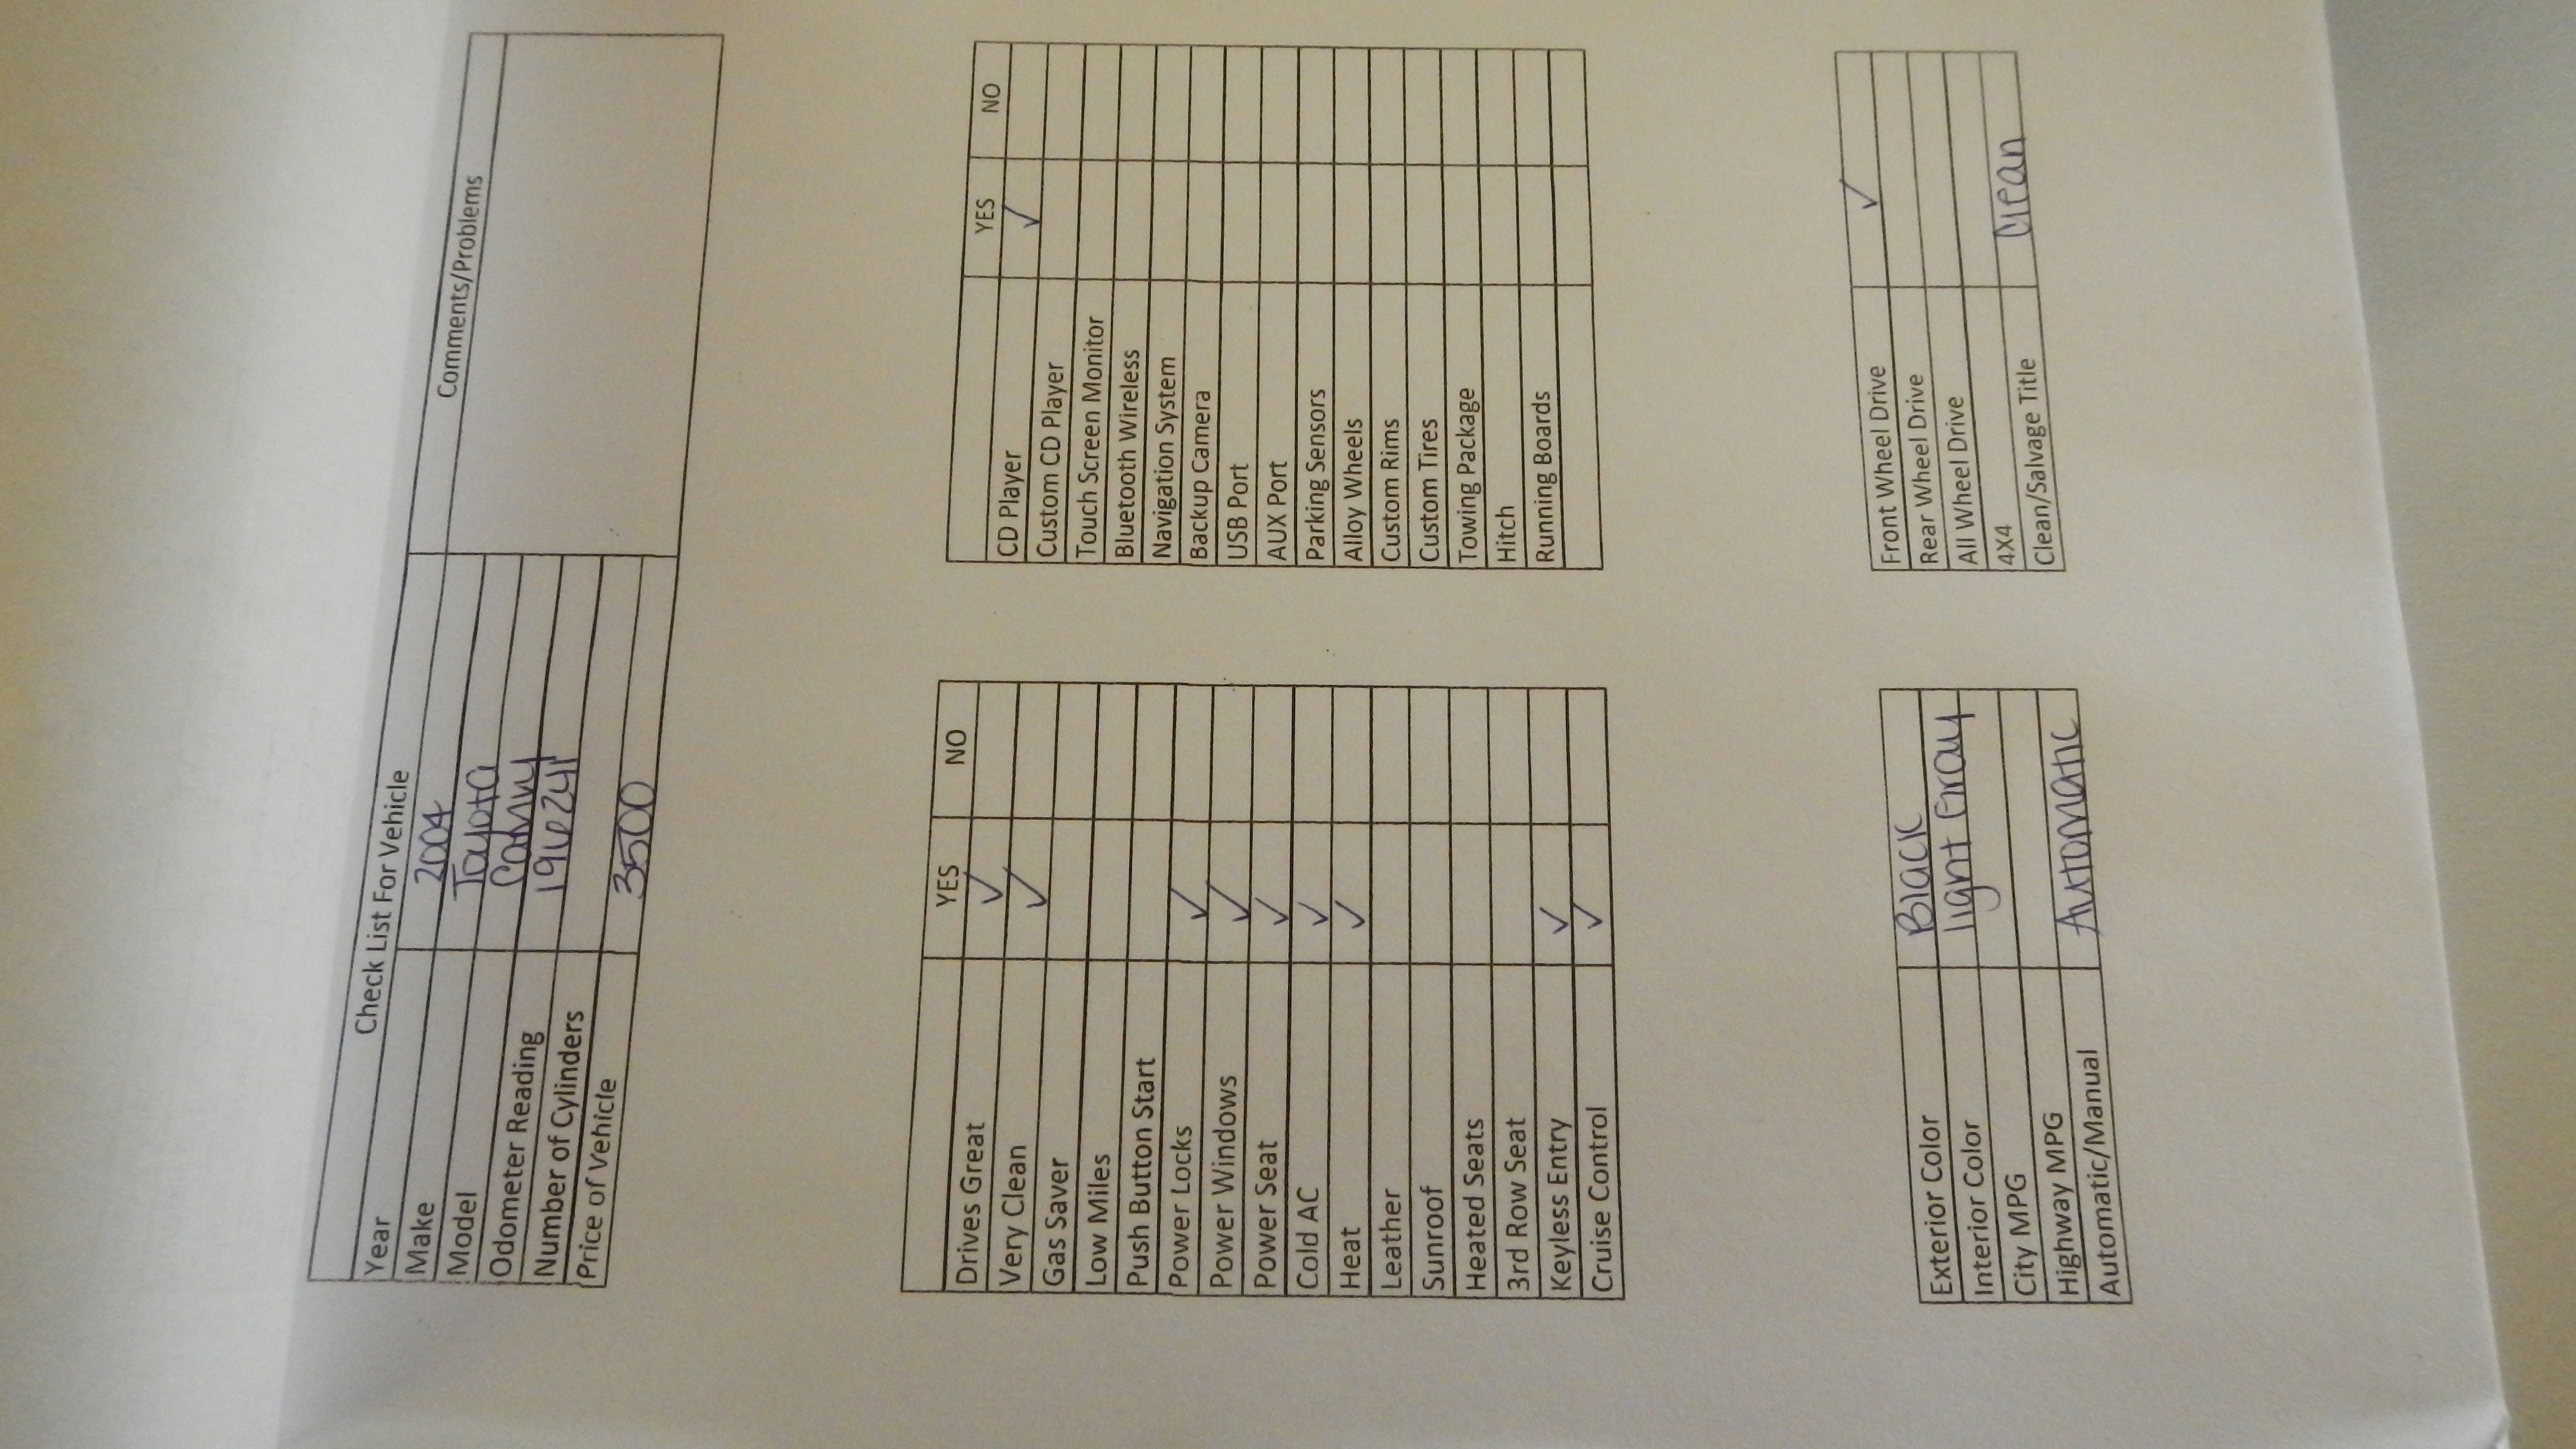 Check List For Vehicle
Comments/Problems
Year 2004
Make Toyota
Model Camry
Odometer Reading 196241
Number of Cylinders
Price of Vehicle 3500
YES NO
Drives Great ✓
Very Clean ✓
Gas Saver
Low Miles
Push Button Start
Power Locks ✓
Power Windows ✓
Power Seat ✓
Cold AC ✓
Heat ✓
Leather
Sunroof
Heated Seats
3rd Row Seat
Keyless Entry ✓
Cruise Control ✓
YES NO
CD Player ✓
Custom CD Player
Touch Screen Monitor
Bluetooth Wireless
Navigation System
Backup Camera
USB Port
AUX Port
Parking Sensors
Alloy Wheels
Custom Rims
Custom Tires
Towing Package
Hitch
Running Boards
Exterior Color Black
Interior Color light Gray
City MPG
Highway MPG
Automatic/Manual Automatic
Front Wheel Drive ✓
Rear Wheel Drive
All Wheel Drive
4X4
Clean/Salvage Title Clean